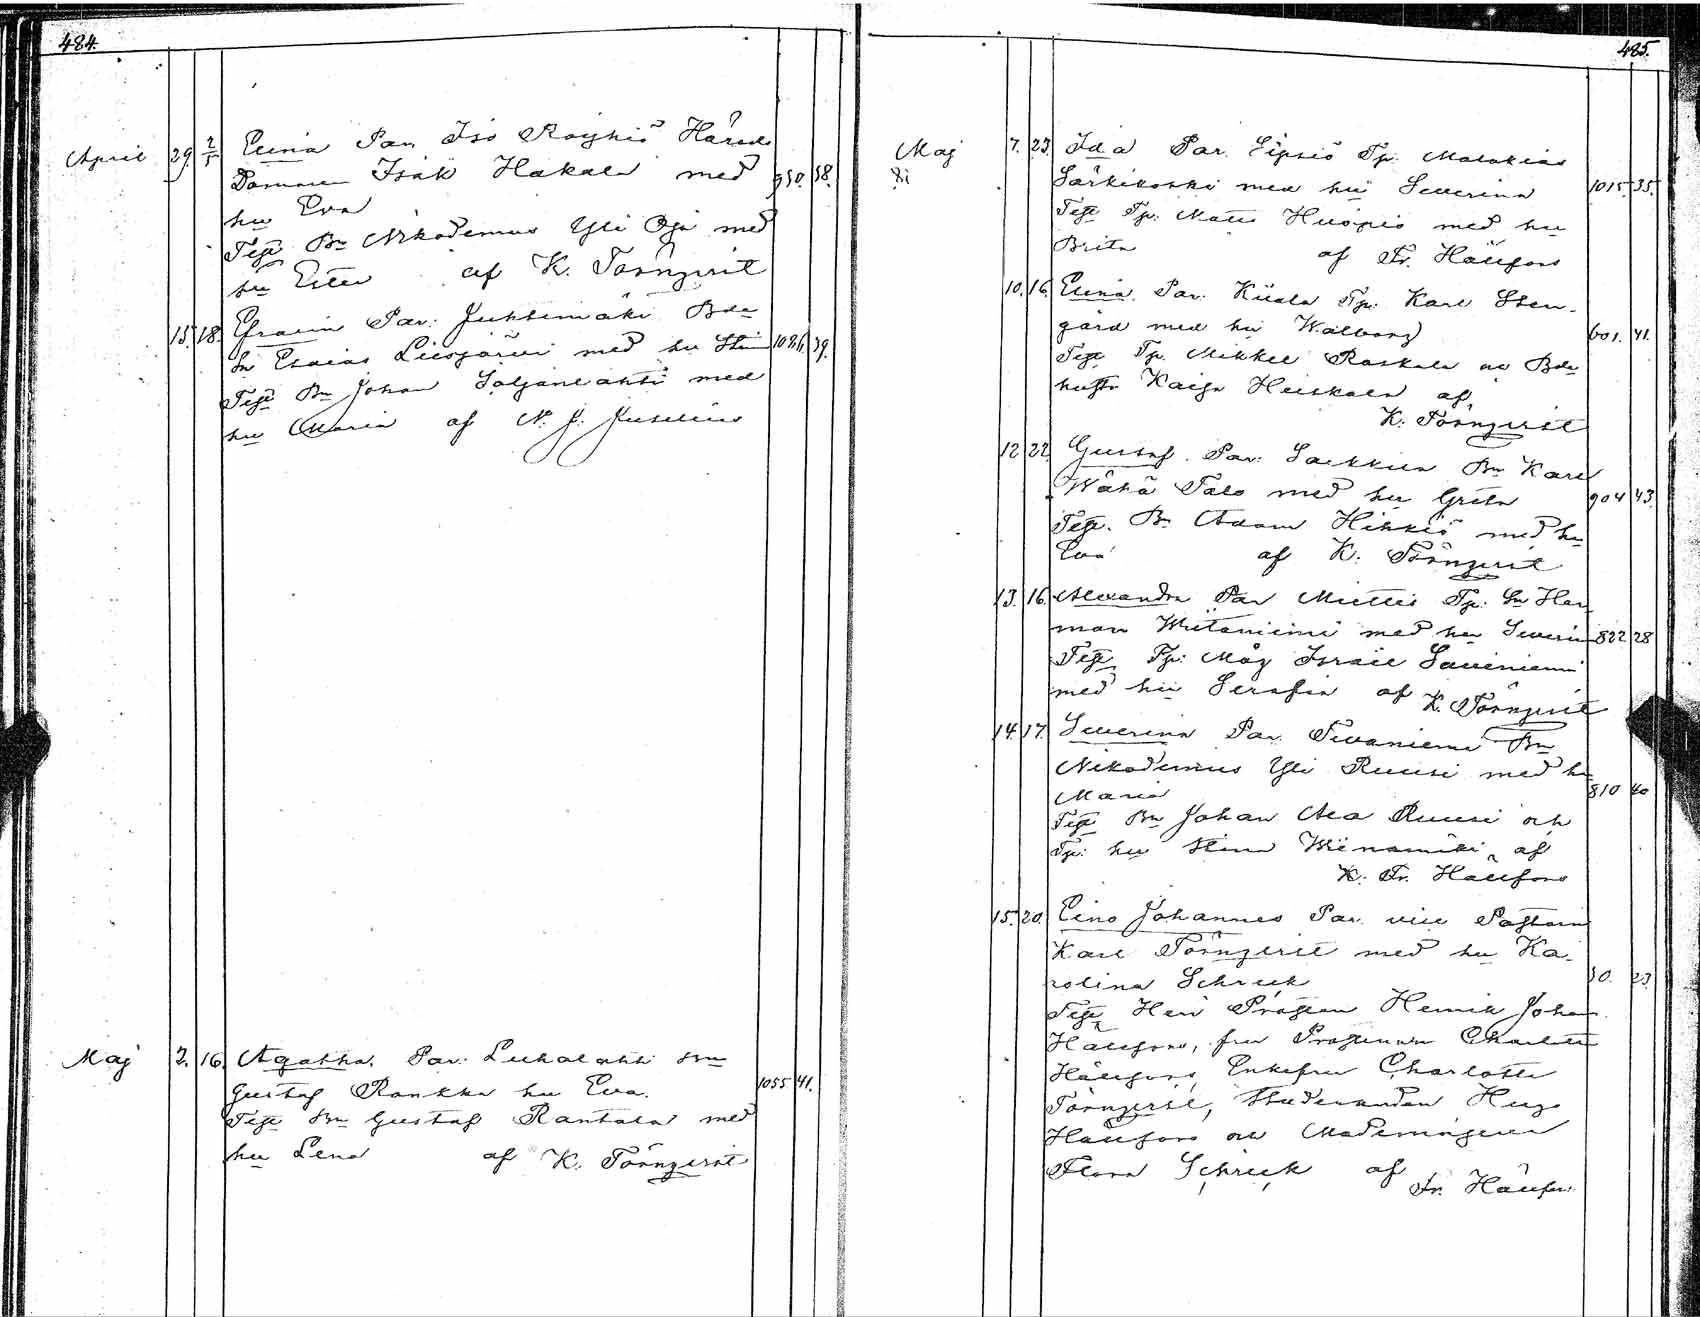 484.
April 29. 2/5 Elina Par. Iso Röyhiö Härads
Domaren Isak Hakala med 950. 38.
hu Eva
Test Bn Nikodemus Yli Oja med
hu Ester af K. Törnqvist
15. 18. Efraim Par: Juhtimäki Bde
Sn Esaias Liesjärvi med hu Stina 1086. 39.
Test Bn Johan Saljanlahti med
hu Maria af N. J. Juselius
Maj 2. 16. Agatha. Par: Luhalahti
Gustaf Rankka hu Eva. 1055 41.
Test Bn Gustaf Rantala med
hu Lena af K. Törnqvist
485.
Maj 7. 23. Ida Par. Sipsiö Tp: Malakias
Särkikoski med hu Severina 1015. 35.
Test Tp: Matts med hu
Brita af Fr. Hällfors
10. 16. Elina. Par: Küala Tp: Karl Sten-
gård med hu Walborg 601. 41.
Test Tp. Mikkel Raskala oc Bde
hustr Kaisa Heiskala af
K. Törnqvist
12 22. Gustaf. Par: Bn Karl
Wähä Talo med hu Greta 904 43.
Test. Bn Adam Hikkiö med hu
Eva af K. Törnqvist
13. 16. Alexandra Par Miettis Tp: Sn Her-
man Wiitaniemi med hu Severin 822 28
Test Tp: Måg Israel Saviniemi
med hu Serafia af K. Törnqvist
14. 17. Severina Par. Bn
Nikodemus Yli Ruusi med hu
Maria 810 40
Test Bn Johan Ala Ruusi och
Tp: hu Stina Wiinamäki af
K. Fr. Hällfors
15. 20. Eino Johannes Par. vice Pastorn
Karl Törnqvist med hu Ka-
rolina Schreck 30. 23.
Test Herr Prosten Henrik Johan
Hällfors, fru Prostinnan Charlotta
Hällfors, Enkefru Charlotte
Törnqvist, Studeranden Hugo
Hällfors och Mademoiselle
Flora Schreck af Fr. Hällfors